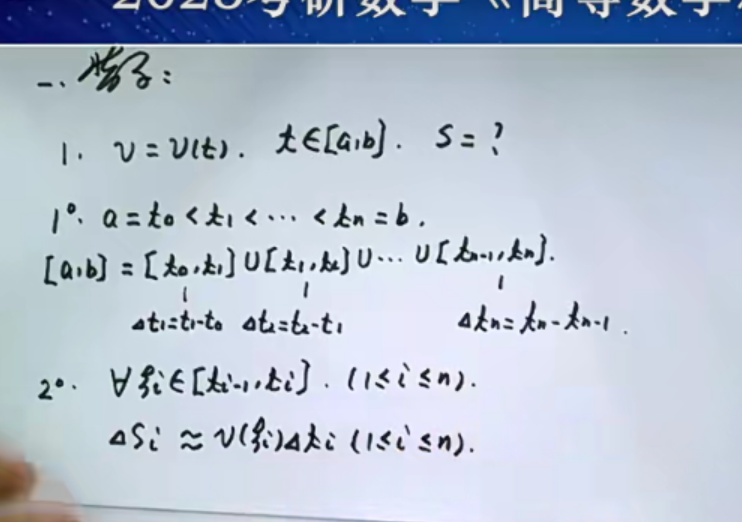 2026考研数学《高等数学
一. 背景:
1. v = v(t). t∈[a,b]. S = ?
1°. a = t₀ < t₁ < ⋯ < tₙ = b.
[a,b] = [t₀,t₁]∪[t₁,t₂]∪⋯∪[tₙ₋₁,tₙ].
Δt₁=t₁-t₀ Δt₂=t₂-t₁ Δtₙ=tₙ-tₙ₋₁.
2°. ∀ξᵢ∈[tᵢ₋₁,tᵢ]. (1≤i≤n).
ΔSᵢ ≈ v(ξᵢ)Δtᵢ (1≤i≤n).